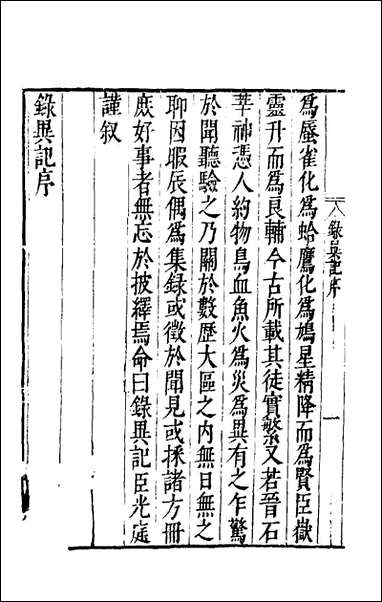 錄異記序
一
為蜃雀化為蛤鷹化為鳩星精降而為賢臣嶽
靈升而為良輔今古所載其徒實繁又若晉石
莘神憑人約物鳥血魚火為災為異有之乍驚
於聞聽驗之乃關於數歷大區之內無日無之
聊因暇辰偶為集録或徵於聞見或採諸方冊
庶好事者無忘於披繹焉命曰錄異記臣光庭
謹叙
錄異記序